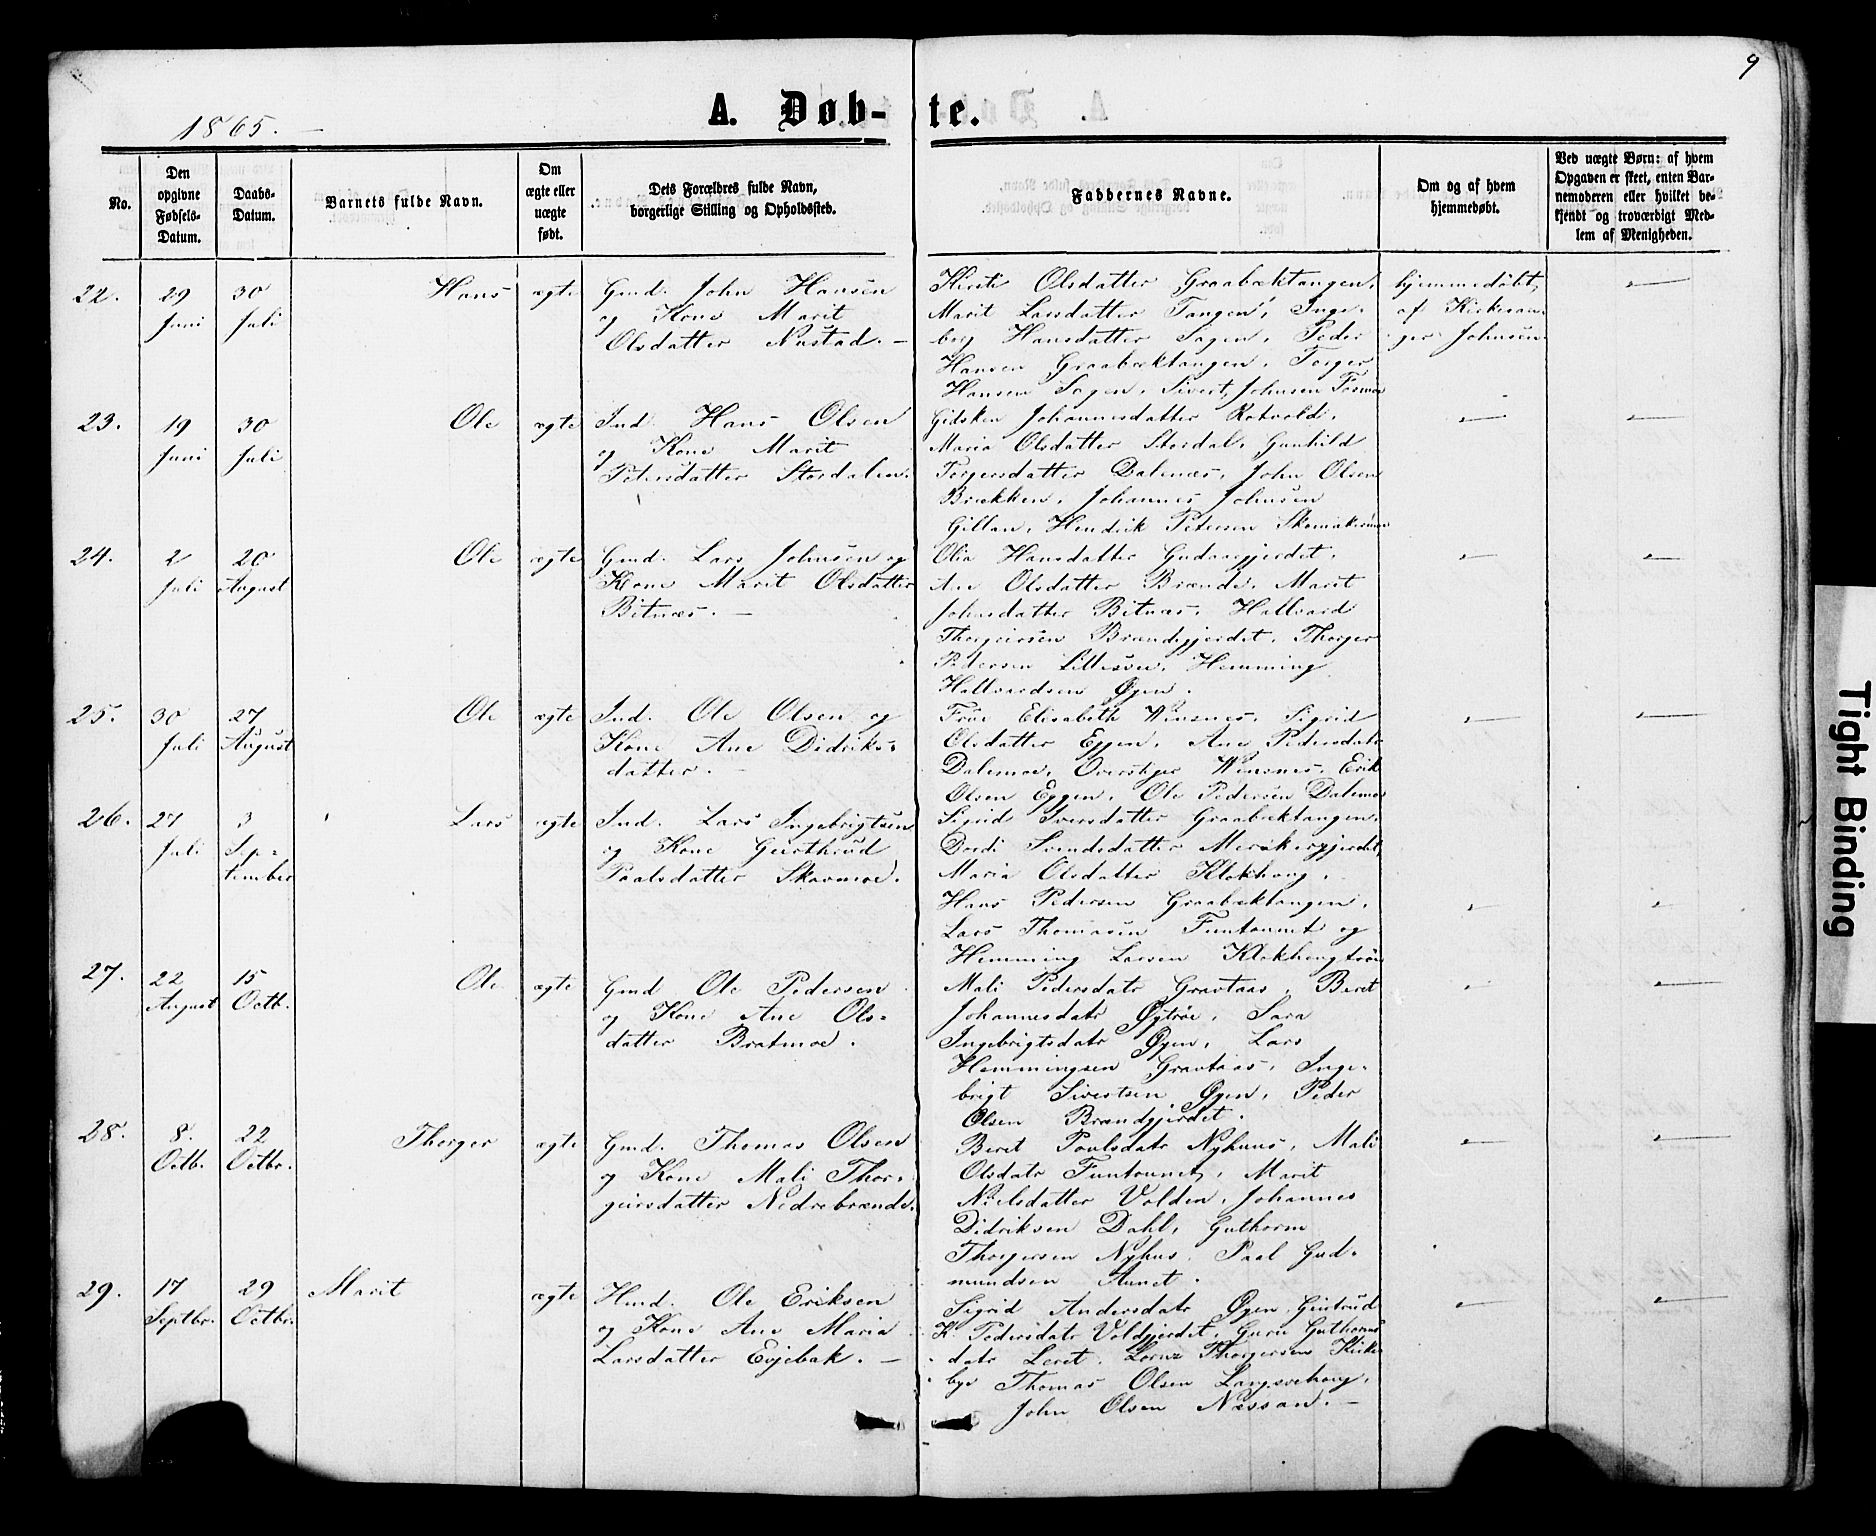 9
1865.
A. Døb-te.
No.
Den opgivne Fødsels-Datum.
Daabs-Datum.
Barnets fulde Navn.
Om ægte eller uægte født.
Dets Forældres fulde Navn, borgerlige Stilling og Opholdssted.
Faddernes Navne.
Om og af hvem hjemmedøbt.
Ved uægte Børn: af hvem Opgaven er skeet, enten Barnemoderen eller hvilket bekjendt og troværdigt Medlem af Menigheden.
22.
29 Juni
30 Juli
Hans
ægte
Gmd. John Hansen
og Kone Marit
Olsdatter Nustad. –
Kirsti Olsdatter Graabæktangen,
Marit Larsdatter Tangen, Inge-
borg Hansdatter Sagen, Peder
Hansen Graabæktangen, Torger
Hansen Sagen, Sivert Johnsen Fosmoe
hjemmedøbt,
af Kirkesan-
ger Johnsen.
23.
19 Juni
30 Juli
Ole
ægte
Ind. Hans Olsen
og Kone Marit
Petersdatter Stordalen.
Gidsken Johannesdatter Rotvold,
Maria Olsdatter Stordal, Gunhild
Torgersdatter Dalenæs, John Olsen
Brækken, Johannes Johnsen
Gillan, Hendrik Petersen
24.
2 Juli
20 August
Ole
ægte
Gmd. Lars Johnsen og
Kone Marit Olsdatter
Bitnæs. –
Olia Hansdatter Gudaagjerdet,
Ane Olsdatter Brænde, Marit
Johnsdatter Bitnæs, Hallvard
Thorgeirsen Brændegjerdet, Thorger
Pedersen Hemming
Hallvardsen Øgen.
25.
30 Juli
27 August
Ole
ægte
Ind. Ole Olsen og
Kone Ane Didriks-
datter. –
Frue Elisabeth Winsnes, Sigrid
Olsdatter Eggen, Ane Pedersdatr
Dalemoe, Overstiger Winsnes, Erik
Olsen Eggen, Ole Pedersen Dalemoe
26.
27 Juli
3 Sep-
tember
Lars
ægte
Ind. Lars Ingebrigtsen
og Kone Gurthrud
Paalsdatter Skavmoe.
Sigrid Iversdatter Graabæktangen,
Dordi Svendsdatter Merakergjerdet,
Maria Olsdatter Klokhaug,
Hans Pedersen Graabæktangen,
Lars Thomasen Funtaunet og
Hemming Larsen Klokhaugtrøen
27.
22 August
15 Octb.
Ole
ægte
Gmd Ole Pedersen
og Kone Ane Ols-
datter Bratmoe.
Mali Pedersdatr Gravtaas, Beret
Johannesdatr Øgtrøe, Sara
Ingebrigtsdatr Øgen, Lars
Hemmingsen Gravtaas, Inge-
brigt Sivertsen Øgen, Peder
Olsen Brændgjerdet.
28.
8. Octb.
22 Octbr.
Thorger
ægte
Gmd. Thomas Olsen
og Kone Mali Thor-
geirsdatter Nedrebrænde.
Beret Poulsdatr Nyhuus, Mali
Olsdatr Funtaunet, Marit
Nielsdatter Volden, Johannes
Didriksen Dahl, Guthorm
Thorgersen Nyhus, Paal Gud-
mundsen Aunet.
29.
17 Septbr.
29 Octbr.
Marit
ægte
Hmd. Ole Eriksen
og Kone Ane Maria
Larsdatter Evjebak. –
Sigrid Andersdatr Øgen, Gjertrud
K. Pedersdatr Voldgjerdet, Guru Guthorms-
datr Leret, Thorgersen Kirke-
bye Thomas Olsen
John Olsen Næssan. –
Tight Binding